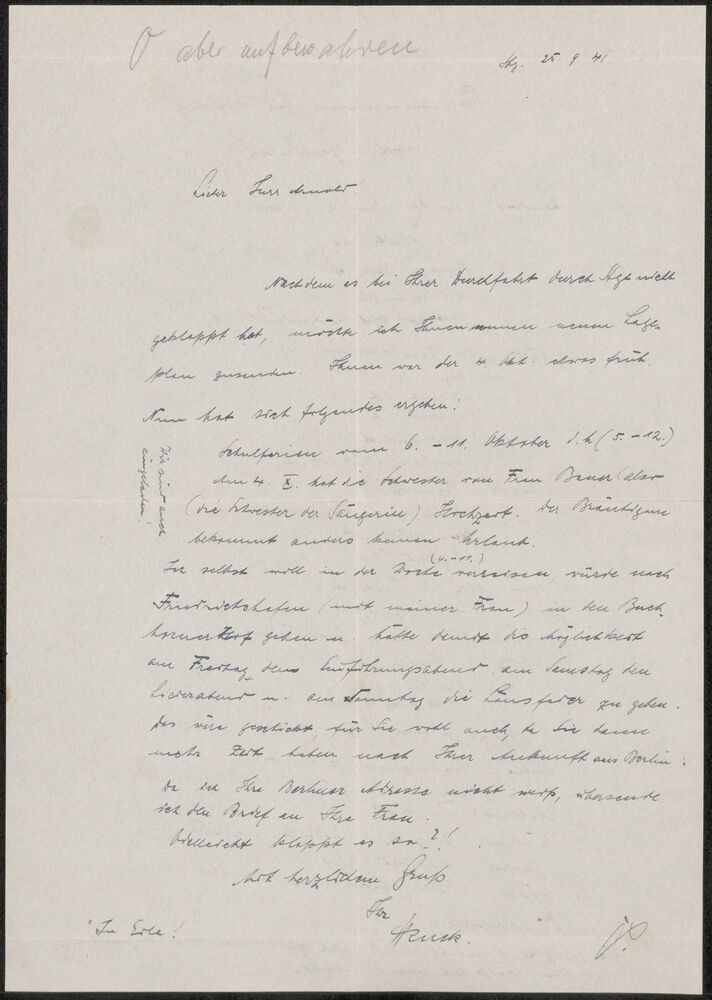 O aber aufbewahren
Stg. 25. 9. 41
Lieber Herr Arnold
Nachdem es bei Ihrer Durchfahrt durch Stgt nicht
geklappt hat, möchte ich Ihnen einen neuen Lage-
plan zusenden. Ihnen war der 4. Okt. etwas früh.
Nun hat sich folgendes ergeben:
Schulferien vom 6. - 11. Oktober d. h. (5. - 12.)
Am 4. X. hat die Schwester von Frau Bauer (also
(die Schwester der Sängerin) Hochzeit. Der Bräutigam
bekommt anders keinen Urlaub.
Wir sind auch
eingeladen!
(4. - 11.)
Ich selbst will in der Woche verreisen, würde nach
Friedrichshafen (mit meiner Frau) in den Buch-
horner Hof gehen u. hätte damit die Möglichkeit
am Freitag den Einführungsabend, am Samstag den
Liederabend u. am Sonntag die zu geben.
Das wäre geschickt, für Sie wohl auch, da Sie dann
mehr Zeit haben nach Ihrer Ankunft aus Berlin.
Da ich Ihre Berliner Adresse nicht weiß, übersende
ich den Brief an Ihre Frau.
Vielleicht klappt es so?!
Mit herzlichem Gruß
Ihr
In Eile!